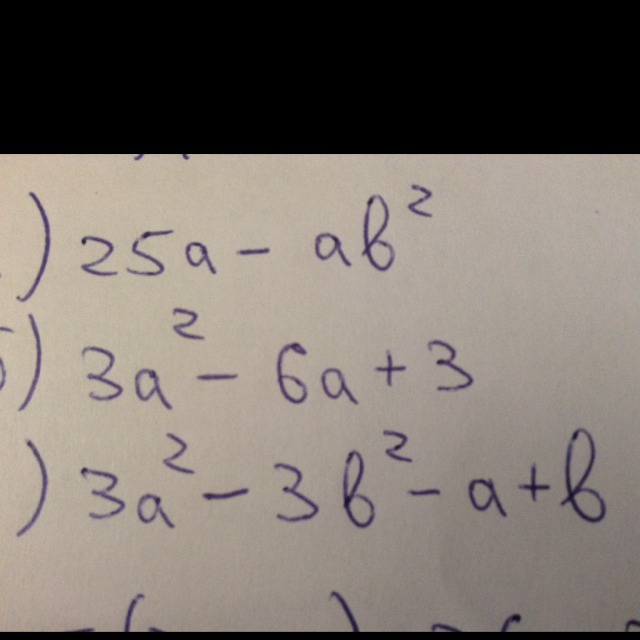 ) 25a - ab²
) 3a² - 6a + 3
) 3a² - 3b² - a + b